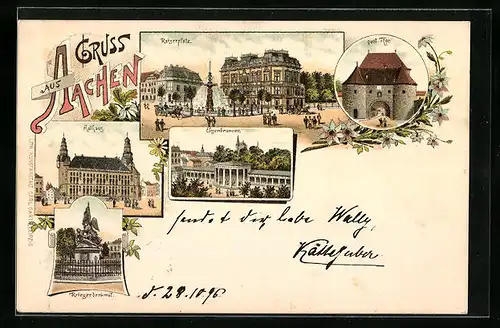 GRUSS
AUS
AACHEN
Kaiserplatz.
Pont-Thor.
Rathaus.
Elisenbrunnen.
Kriegerdenkmal.
sendet der liebe Wally
d. 28.10.96